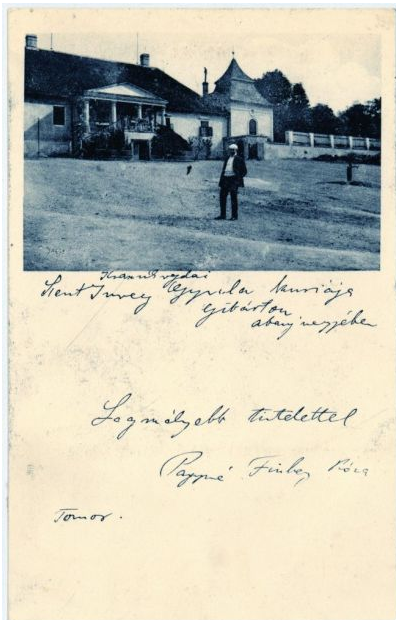 Krasznikvajdai
Szent Imrey Gyula kuriája
Gibárton
abauj megyében
Legmélyebb tisztelettel
Pappné Finkey
Tomor.